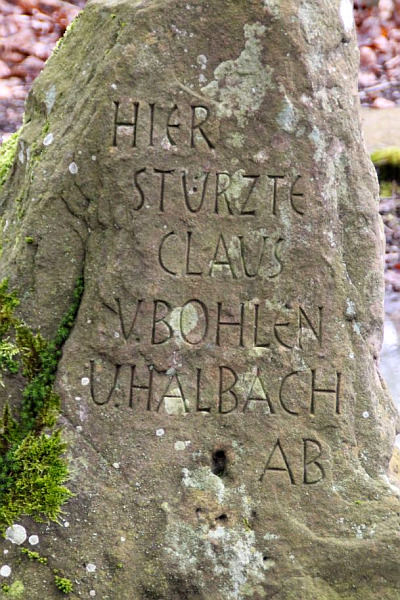 HIER
STÜRZTE
CLAUS
V.BOHLEN
U.HALBACH
AB